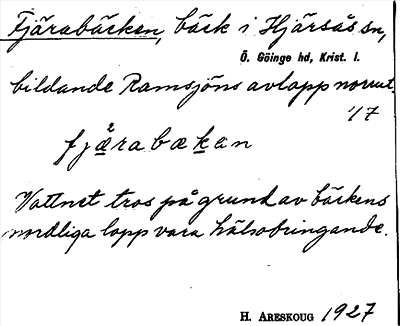 Fjärabäcken, bäck i Hjärsås sn,
Ö. Göinge hd, Krist. l.
bildande Ramsjöns avlopp norrut.
'17
fjæ̊rabækan
Vattnet tros på grund av bäckens
nordliga lopp vara hälsobringande.
H. ARESKOUG 1927